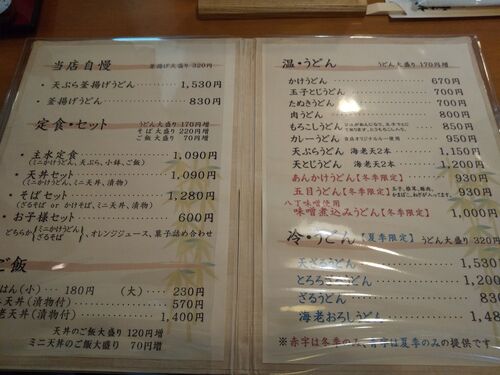 当店自慢 釜揚げ大盛り 320円
・天ぷら釜揚げうどん 1,530円
・釜揚げうどん 830円
定食・セット うどん大盛り 170円増
そば大盛り 220円増
ご飯大盛り 70円増
・主水定食 1,090円
(ミニかけうどん、天ぷら、小鉢、ご飯)
・天丼セット 1,090円
(ミニかけうどん、ミニ天丼、漬物)
・そばセット 1,280円
(ざるそば or かけそば、ミニ天丼、漬物)
・お子様セット 600円
どちらか(ミニかけうどん
ざるそば)、オレンジジュース、菓子詰め合わせ
ご飯
はん(小) 180円 (大) 230円
ミニ天丼(漬物付) 570円
老天丼(漬物付) 1,400円
天丼のご飯大盛り 120円増
ミニ天丼のご飯大盛り 70円増
温・うどん うどん大盛り 170円増
かけうどん 670円
玉子とじうどん 700円
たぬきうどん 700円
肉うどん 800円
もろこしうどん 850円
カレーうどん 当店オリジナルルー使用 950円
天ぷらうどん 海老天2本 1,150円
天とじうどん 海老天2本 1,200円
あんかけうどん【冬季限定】 930円
五目うどん【冬季限定】 930円
八丁味噌使用
味噌煮込みうどん【冬季限定】 1,000円
冷・うどん【夏季限定】 うどん大盛り 320円
天ざるうどん 1,530
とろろざるうどん 1,200
ざるうどん 83
海老おろしうどん 1,48
※赤字は冬季のみ、青字は夏季のみの提供です